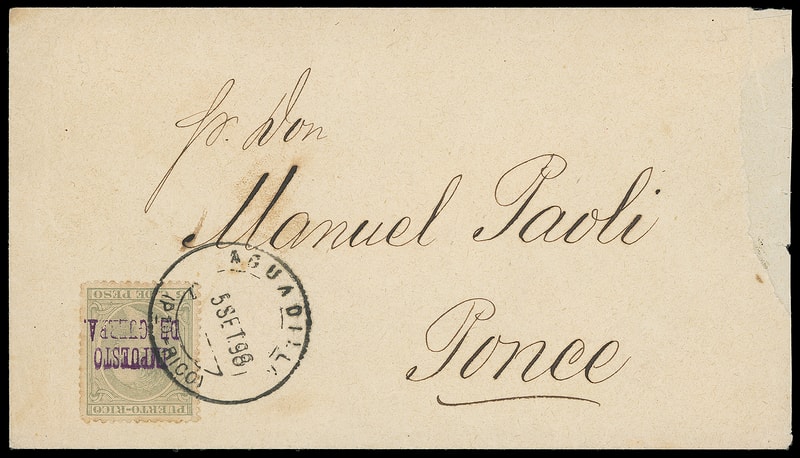 Sr. Don
Manuel Paoli
Ponce
AGUADILLA
5 SET. 98
(P. RICO)
DE PESO
IMPUESTO
DE GUERRA.
PUERTO-RICO